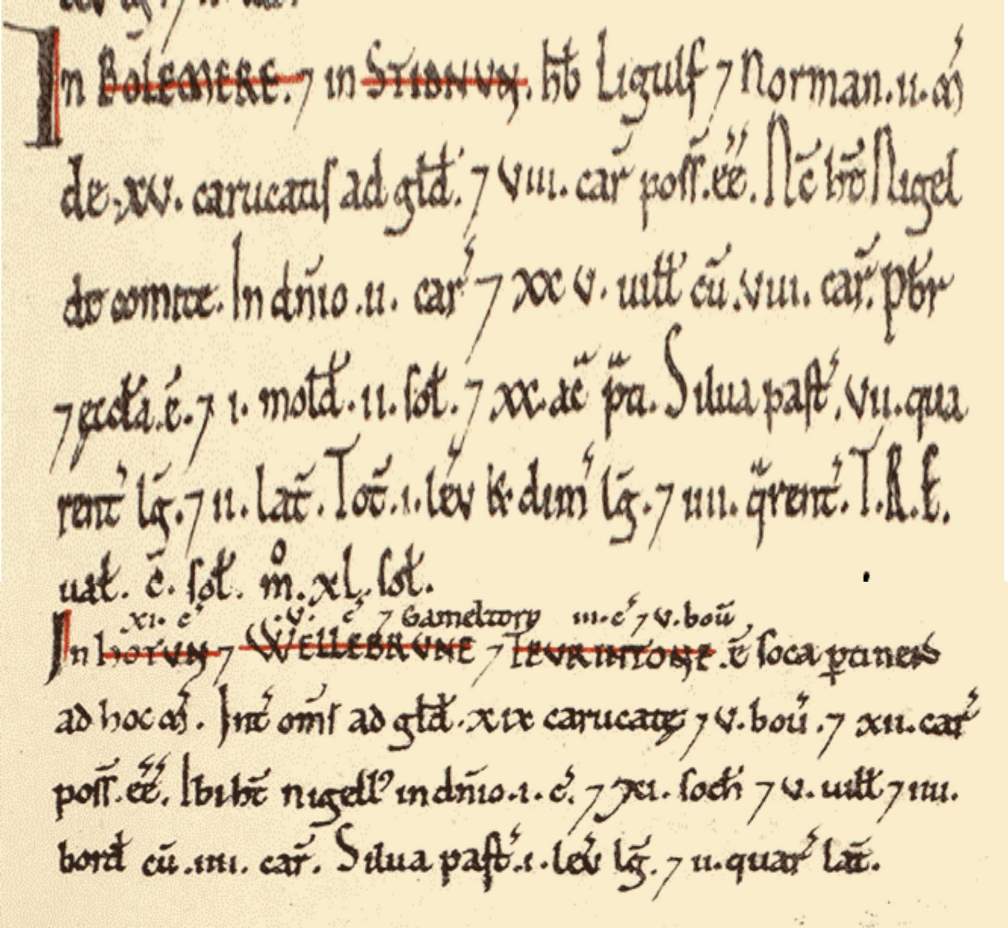 In BOLEMERE.⁊ in STIDNUN. hb̄ Ligulf ⁊ Norman.ii.m̄
de.xv. carucatis ad gld̄. ⁊ viii. car̄ poss̄.ēē. Nc̄ ht̄ Nigel
de comite. In dn̄io .ii. car̄ ⁊ xxv. uilł cū.viii. car̄. pb̄r
⁊ęccła.ē.⁊ i. mold̄.ii. soł.⁊ xx.ac̄ p̄ti. Silua past̄.vii.qua
rent̄ lḡ.⁊ ii. lat̄. Tot̄.i.lev̄ & dim̄ lḡ.⁊ iiii. q̄rent̄. T.R.E.
uał. c̄. soł. m̊. xl. soł.
xi. c̄ .v. c̄ ⁊ Gameltorp iii.c̄ ⁊ v.boū
In HOTUN ⁊ WELLEBRUNE ⁊ TEURINTONE .ē soca ptineɴs
ad hoc m̄. Int̄ om̄s ad gld̄.xix carucatę ⁊ v.boū.⁊ xii.car̄
poss̄.ēē. Ibi ht̄ nigell᷒ in dn̄io.i.c̄.⁊ xi. soch̄ ⁊ v. uilł ⁊ iiii.
bord̄ cū .iiii. car̄. Silua past̄.i.lev̄ lḡ.⁊ ii.quar̄ lat̄.